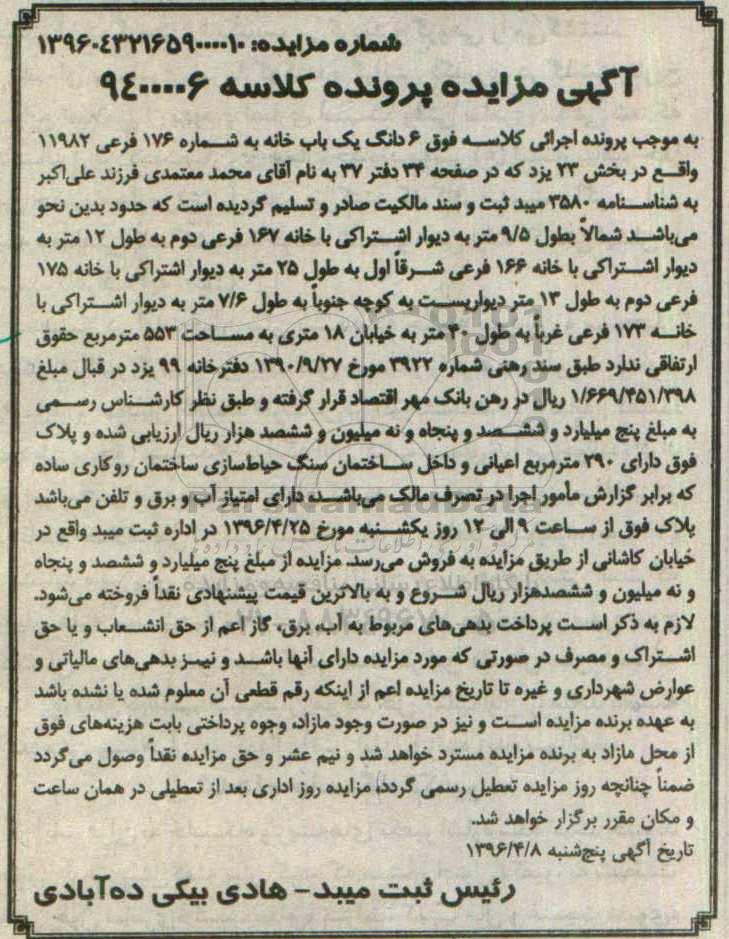 شماره مزایده: ۱۳۹۶۰۴۳۲۱۶۵۹۰۰۰۰۱۰
آگهی مزایده پرونده کلاسه ۹۴۰۰۰۰۶
به موجب پرونده اجرائی کلاسه فوق ۶ دانگ یک باب خانه به شماره ۱۷۶ فرعی ۱۱۹۸۲
واقع در بخش ۲۳ یزد که در صفحه ۳۴ دفتر ۳۷ به نام آقای محمد معتمدی فرزند علی‌اکبر
به شناسنامه ۳۵۸۰ میبد ثبت و سند مالکیت صادر و تسلیم گردیده است که حدود بدین نحو
می‌باشد شمالاً بطول ۹/۵ متر به دیوار اشتراکی با خانه ۱۶۷ فرعی دوم به طول ۱۲ متر به
دیوار اشتراکی با خانه ۱۶۶ فرعی شرقاً اول به طول ۲۵ متر به دیوار اشتراکی با خانه ۱۷۵
فرعی دوم به طول ۱۳ متر دیواریست به کوچه جنوباً به طول ۷/۶ متر به دیوار اشتراکی با
خانه ۱۷۳ فرعی غرباً به طول ۴۰ متر به خیابان ۱۸ متری به مساحت ۵۵۳ مترمربع حقوق
ارتفاقی ندارد طبق سند رهنی شماره ۳۹۲۲ مورخ ۱۳۹۰/۹/۲۷ دفترخانه ۹۹ یزد در قبال مبلغ
۱/۶۶۹/۴۵۱/۳۹۸ ریال در رهن بانک مهر اقتصاد قرار گرفته و طبق نظر کارشناس رسمی
به مبلغ پنج میلیارد و ششصد و پنجاه و نه میلیون و ششصد هزار ریال ارزیابی شده و پلاک
فوق دارای ۲۹۰ مترمربع اعیانی و داخل ساختمان سنگ حیاط‌سازی ساختمان روکاری ساده
که برابر گزارش مأمور اجرا در تصرف مالک می‌باشد دارای امتیاز آب و برق و تلفن می‌باشد
پلاک فوق از ساعت ۹ الی ۱۲ روز یکشنبه مورخ ۱۳۹۶/۴/۲۵ در اداره ثبت میبد واقع در
خیابان کاشانی از طریق مزایده به فروش می‌رسد. مزایده از مبلغ پنج میلیارد و ششصد و پنجاه
و نه میلیون و ششصدهزار ریال شروع و به بالاترین قیمت پیشنهادی نقداً فروخته می‌شود.
لازم به ذکر است پرداخت بدهی‌های مربوط به آب، برق، گاز اعم از حق انشعاب و یا حق
اشتراک و مصرف در صورتی که مورد مزایده دارای آنها باشد و نیز بدهی‌های مالیاتی و
عوارض شهرداری و غیره تا تاریخ مزایده اعم از اینکه رقم قطعی آن معلوم شده یا نشده باشد
به عهده برنده مزایده است و نیز در صورت وجود مازاد، وجوه پرداختی بابت هزینه‌های فوق
از محل مازاد به برنده مزایده مسترد خواهد شد و نیم عشر و حق مزایده نقداً وصول می‌گردد
ضمناً چنانچه روز مزایده تعطیل رسمی گردد، مزایده روز اداری بعد از تعطیلی در همان ساعت
و مکان مقرر برگزار خواهد شد.
تاریخ آگهی پنج‌شنبه ۱۳۹۶/۴/۸
رئیس ثبت میبد- هادی بیکی ده‌آبادی